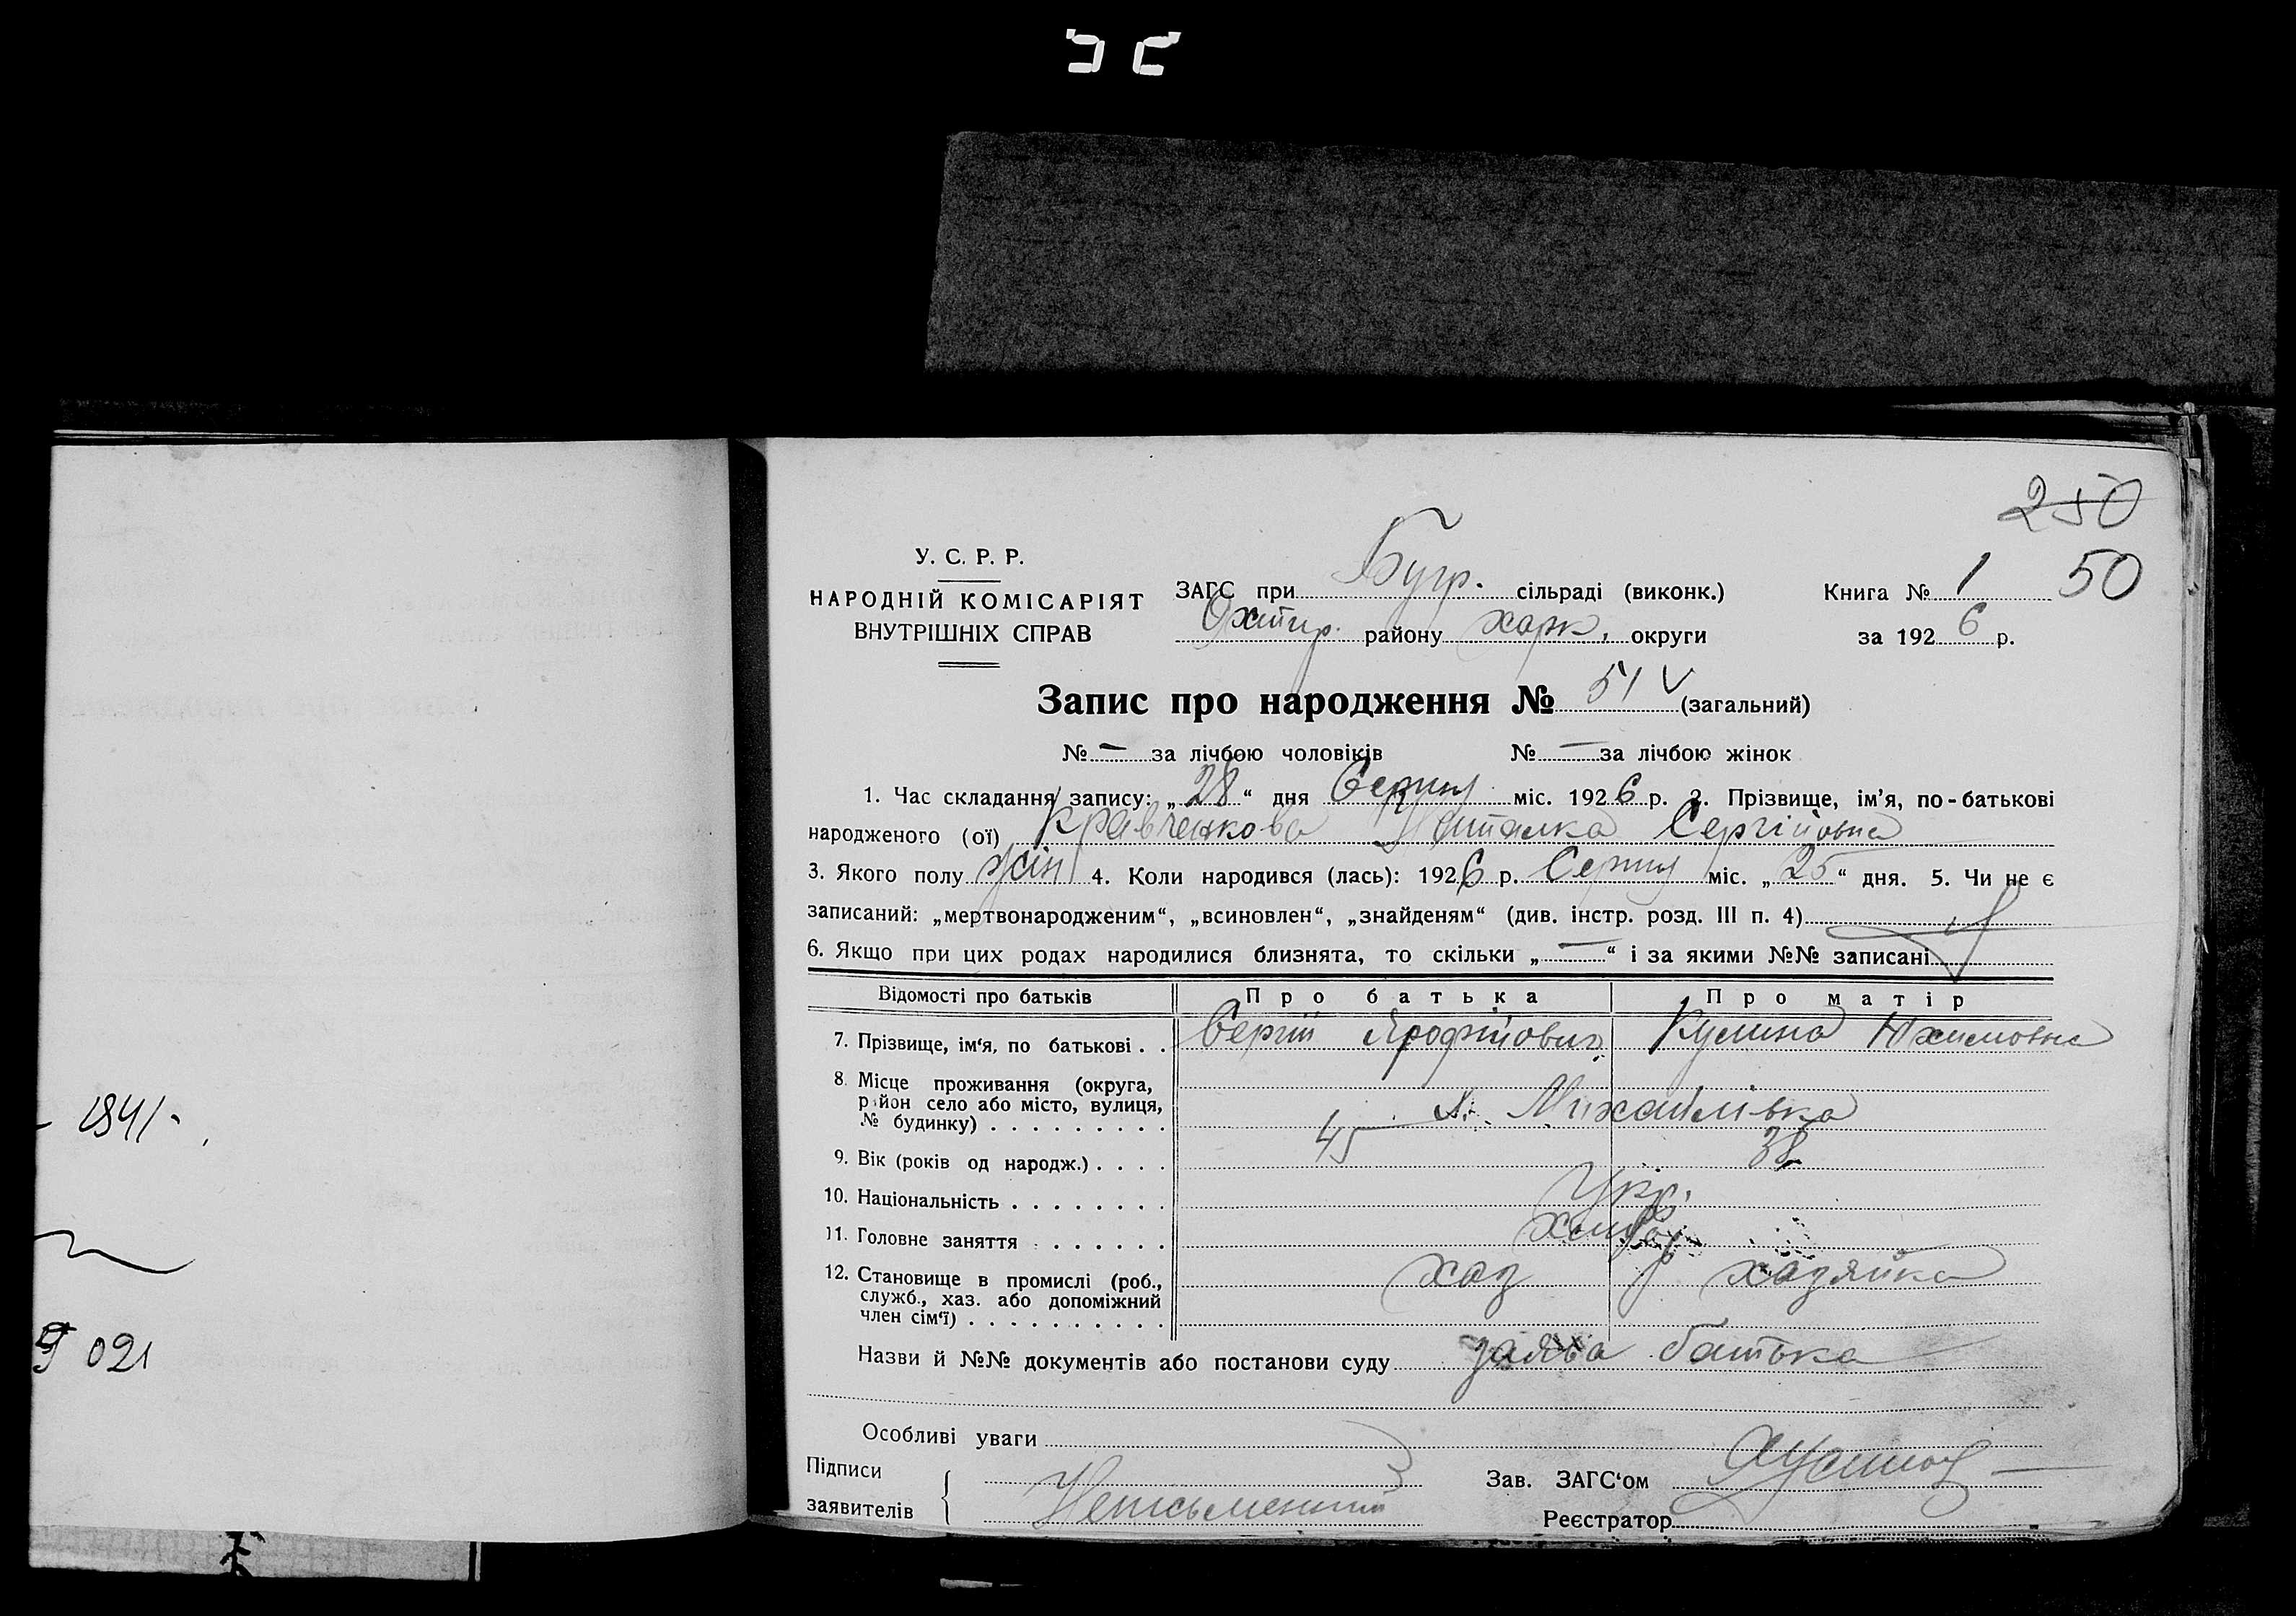 250
У. С. Р. Р.
НАРОДНІЙ КОМІСАРІЯТ
ВНУТРІШНІХ СПРАВ
ЗАГС при Бугр. сільраді (виконк.)
Охтир. району Харк. округи
Книга № 1 50
за 1926 р.
Запис про народження № 51 (загальний)
№ — за лічбою чоловіків № — за лічбою жінок
1. Час складання запису: „28“ дня Серпня міс. 1926 р. 2. Прізвище, ім'я, по-батькові
народженого (ої) Кравченкова Наталка Сергійовна
3. Якого полу жін 4. Коли народився (лась): 1926 р. Серпня міс. „25“ дня. 5. Чи не є
записаний: „мертвонародженим“, „всиновлен“, „знайденям“ (див. інстр. розд. III п. 4)
6. Якщо при цих родах народилися близнята, то скільки „—“ і за якими №№ записані
Відомості про батьків Про батька Про матір
7. Прізвище, ім'я, по батькові . . Сергій Ярофійович Кулина Юхимовна
8. Місце проживання (округа,
район село або місто, вулиця,
№ будинку) . . . . . . . . . х. Михайлівка
9. Вік (років од народж.) . . . . 45 38
10. Національність . . . . . . . . Укр.
11. Головне заняття . . . . . . хлібор
12. Становище в промислі (роб., хаз хазяйка
служб., хаз. або допоміжний
член сім'ї) . . . . . . . . . .
Назви й №№ документів або постанови суду заява батька
Особливі уваги
Підписи
заявителів Неписьменний
Зав. ЗАГС'ом
Реєстратор
1941
021